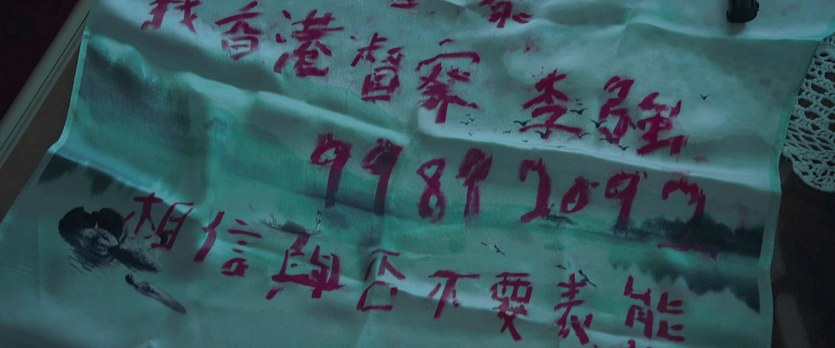 我香港督察 李強
99892092
相信與否不要表態